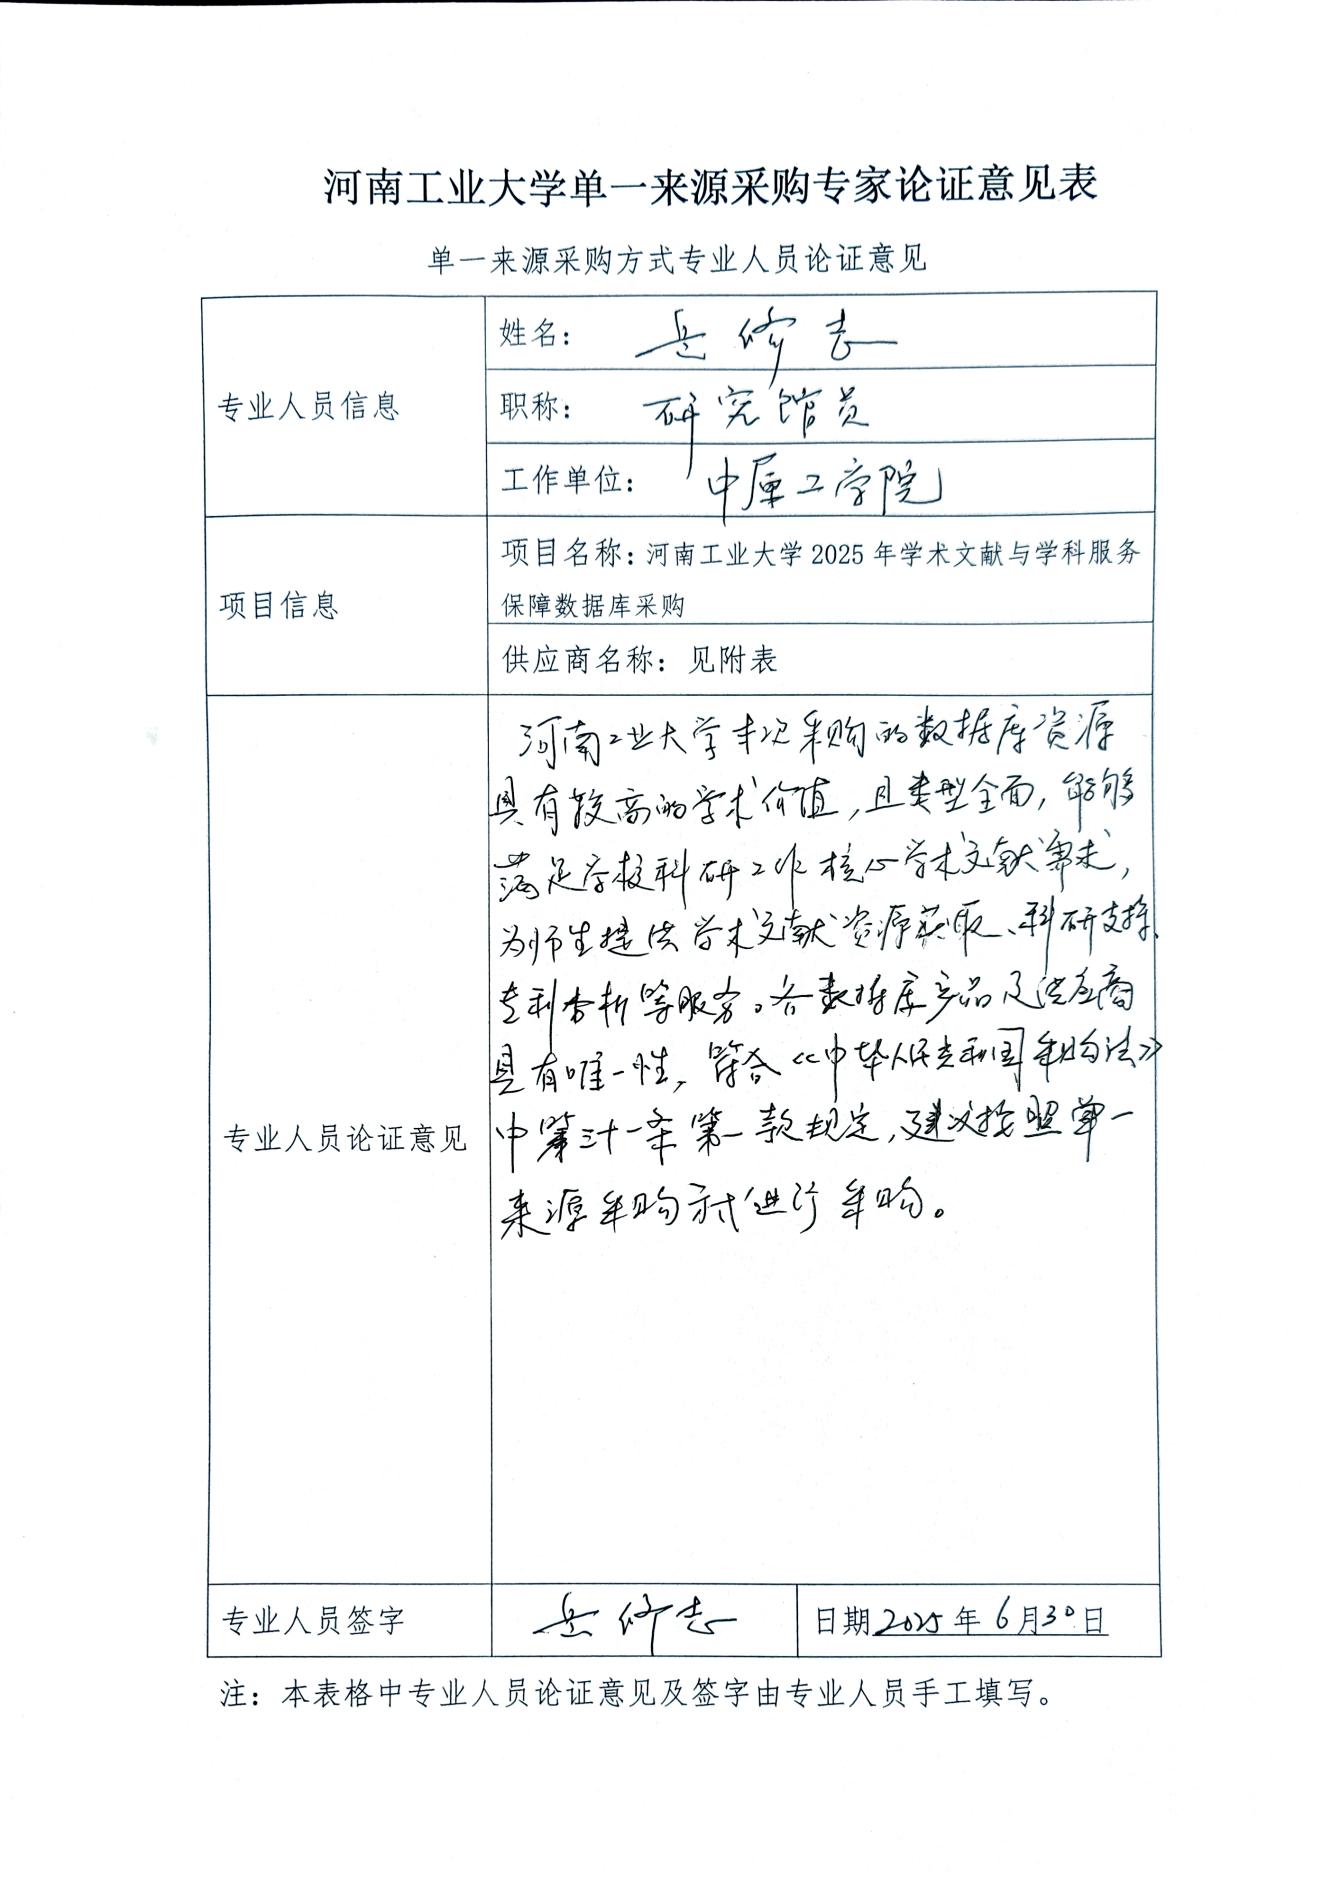 河南工业大学单一来源采购专家论证意见表
单一来源采购方式专业人员论证意见
专业人员信息
姓名： 岳修志
职称： 研究馆员
工作单位： 中原工学院
项目信息
项目名称：河南工业大学2025年学术文献与学科服务
保障数据库采购
供应商名称：见附表
专业人员论证意见
河南工业大学本次采购的数据库资源
具有较高的学术价值，且类型全面，能够
满足学校科研工作核心学术文献需求，
为师生提供学术文献资源获取、科研支持、
专利分析等服务。各数据库产品及供应商
具有唯一性，符合《中华人民共和国采购法》
中第三十一条第一款规定，建议按照单一
来源采购方式进行采购。
专业人员签字
岳修志
日期2025年6月30日
注：本表格中专业人员论证意见及签字由专业人员手工填写。